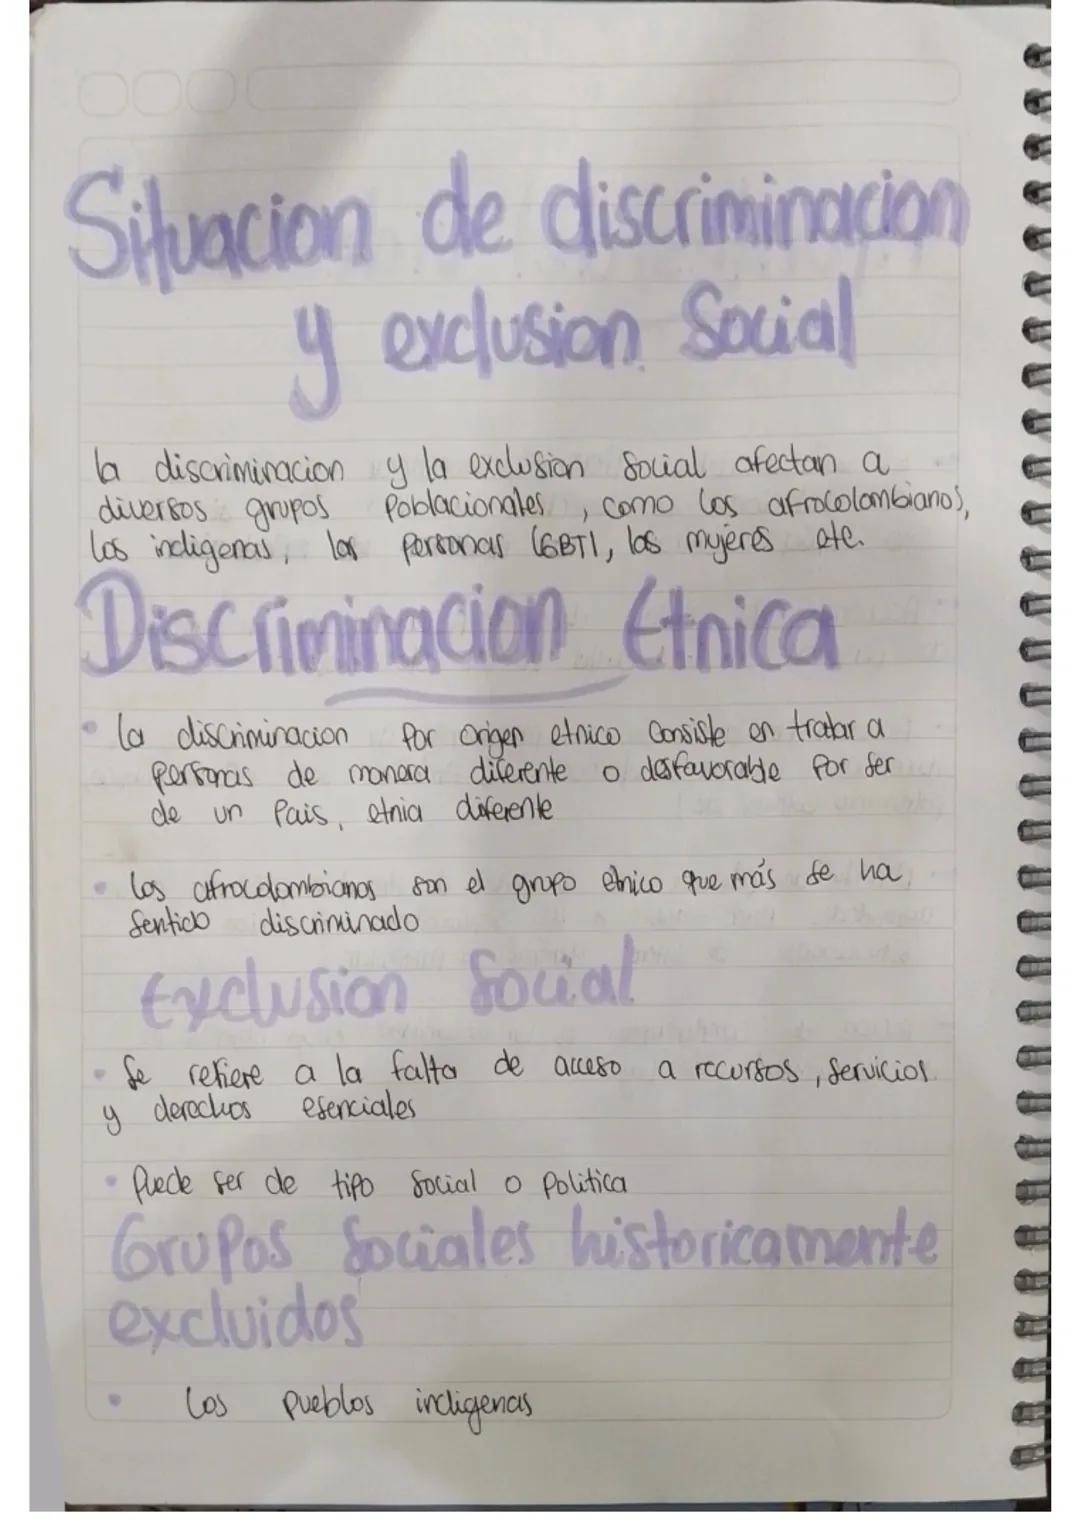 Situacion de discriminacion
y exclusion Social
la discriminacion y la exclusion Social afectan a
diversos grupos Poblacionales, como los afrocolombianos,
los indigenas, las Personas LGBTI, las mujeres etc.
Discriminacion Etnica
• la discriminacion Por origen etnico Consiste en tratar a
personas de manera diferente o desfavorable Por ser
de un Pais, etnia diferente
• los afrocolombianos son el grupo etnico que más se ha
Sentido discriminado
Exclusion Social
• Se refiere a la falta de acceso a recursos, Servicios
y derechos esenciales
• Puede ser de tipo Social o Politica
Grupos Sociales historicamente
excluidos
• Los Pueblos indigenas